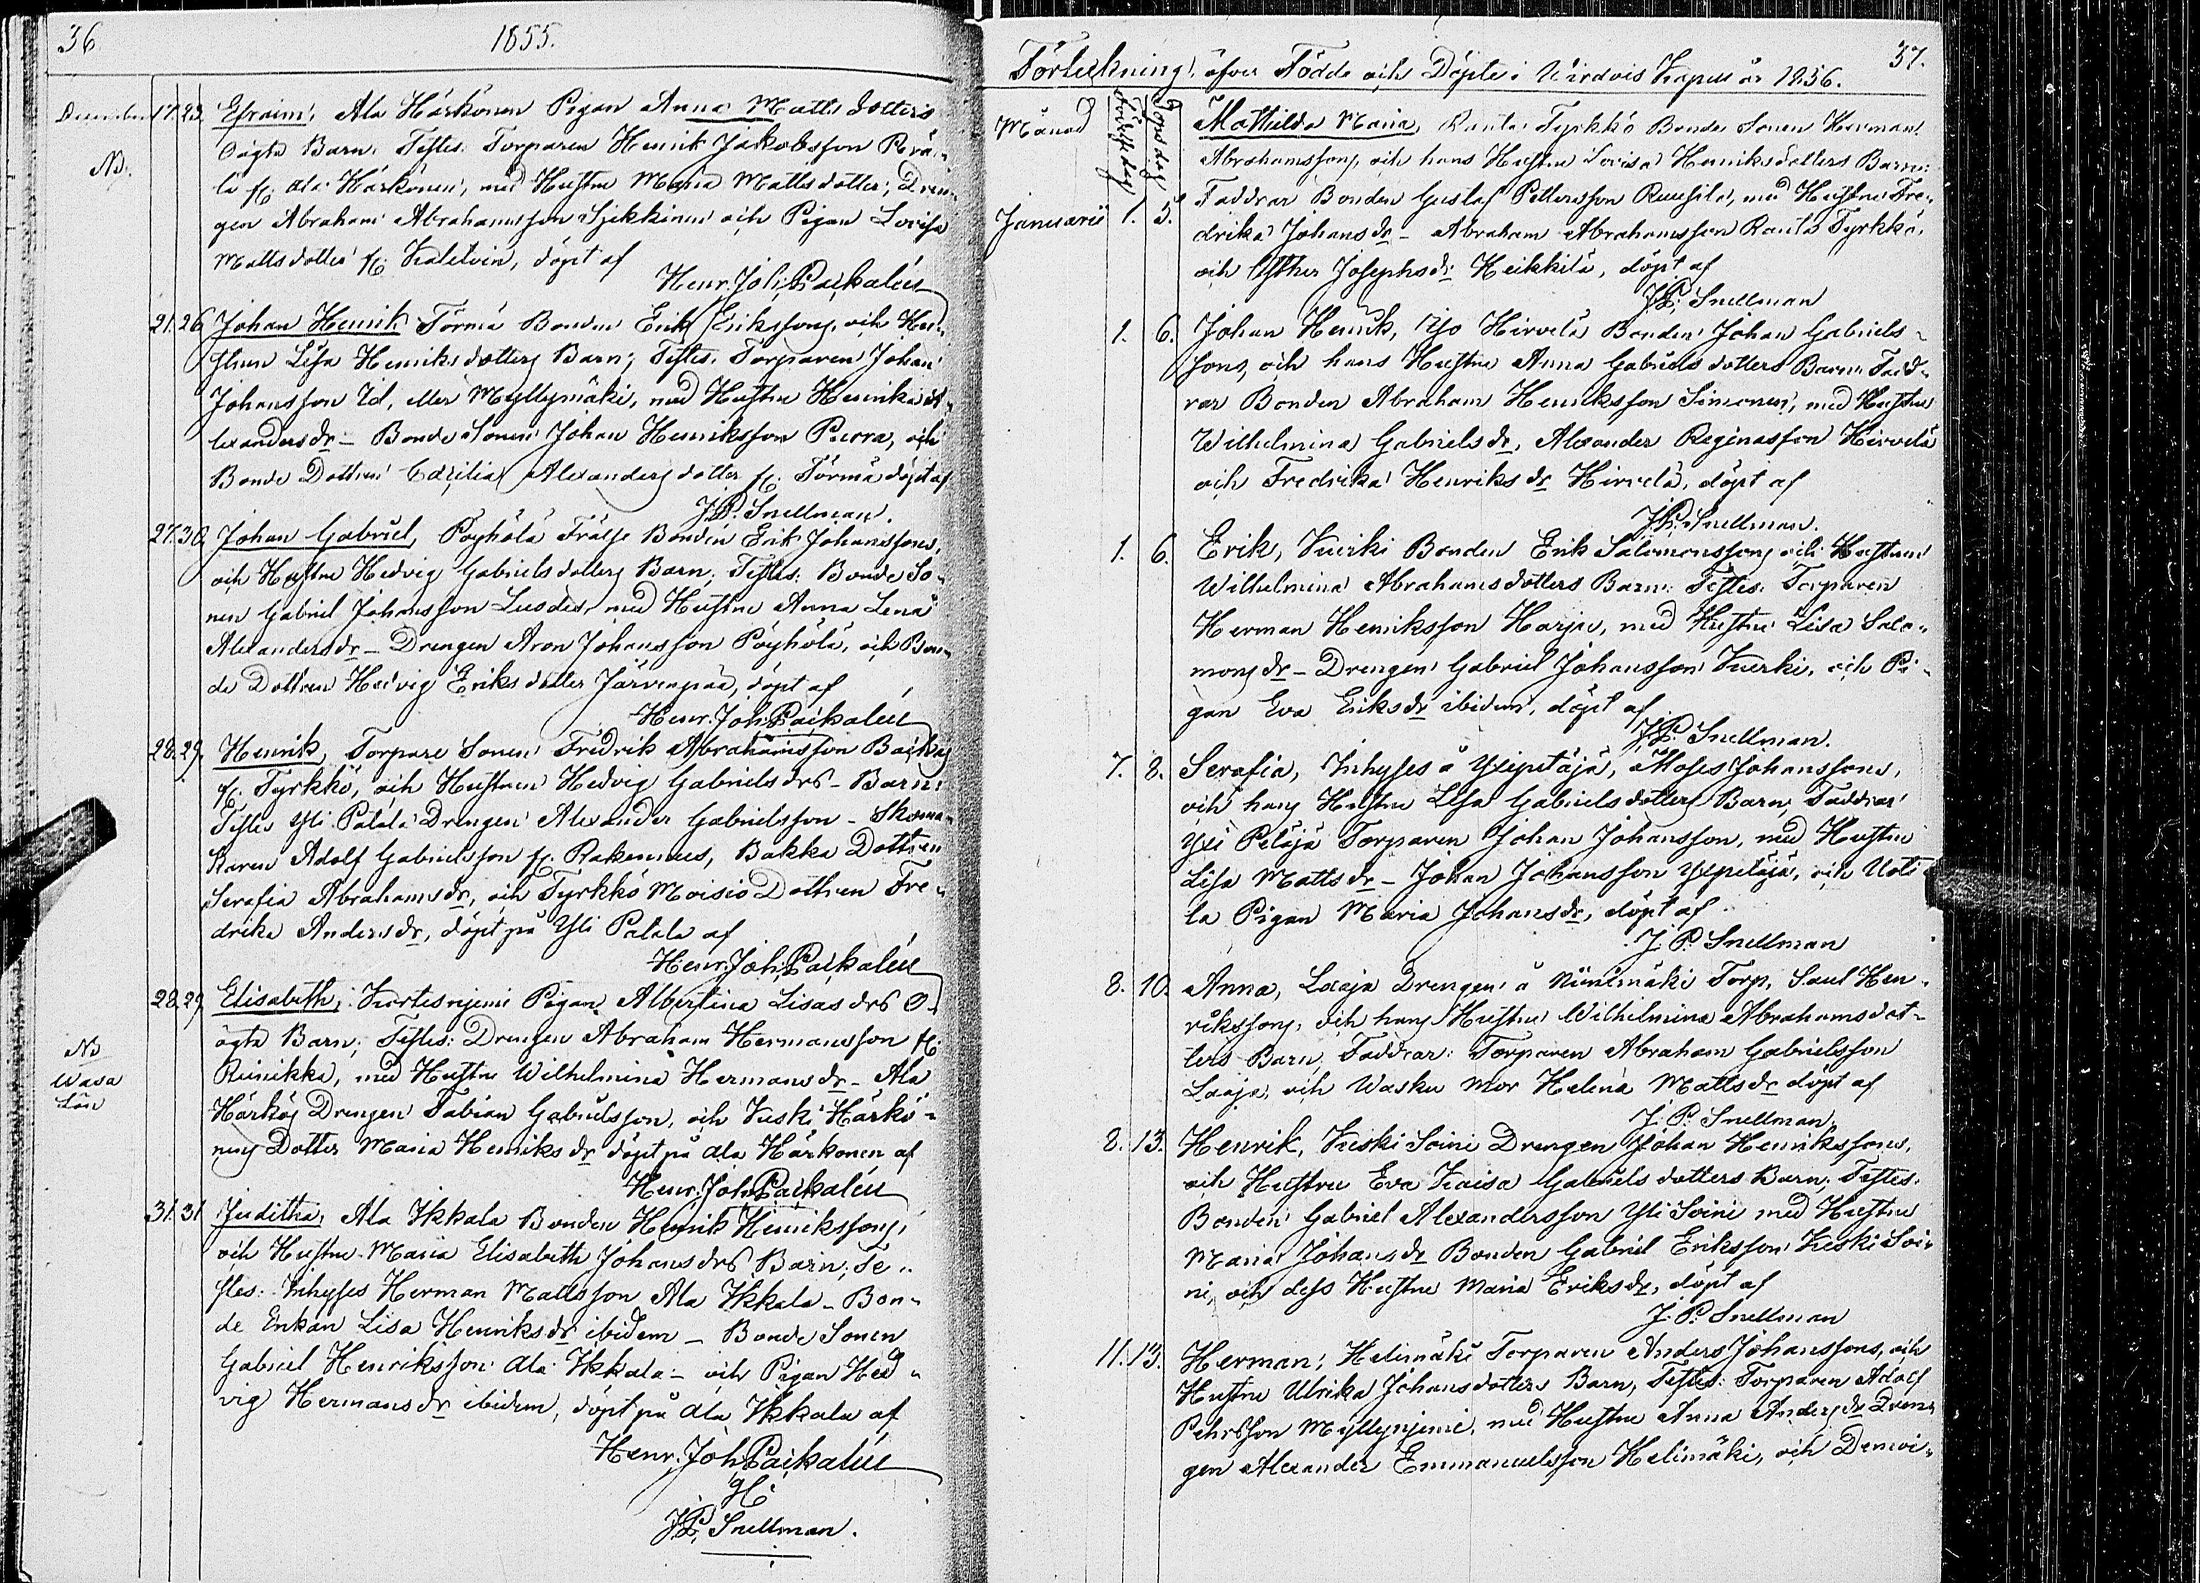 36.
1855.
December 17. 23. Efraim, Ala Härkönen Pigan Anna Mattsdotters
Oägta Barn. Testes: Torparen Henrik Jakobsson Perä-
lä fr. Ala Härkönen, med Hustru Maria Mattsdotter, Dren-
NB.
gen Abraham Abrahamsson Sjekkinen och Pigan Lovisa
Mattsdotter fr. Kaletvin, döpt af
Henr. Joh. Paikalén
21. 26. Johan Henrik Törmä Bonden Erik Erikssons, och Hu-
strun Lisa Henriksdotters Barn; Testes: Torparen Johan
Johansson Id. eller Myllymäki, med Hustru Henrika A-
lexandersdr – Bonde Sonen Johan Henriksson Purra, och
Bonde Dottren Cæcilia Alexandersdotter fr. Törmä döpt af
J. P. Snellman.
27. 30. Johan Gabriel, Pöyhölä Frälse Bonden Erik Johanssons,
och Hustru Hedvig Gabrielsdotters Barn; Testes: Bonde So-
nen Gabriel Johansson Lusdes, med Hustru Anna Lena
Alexandersdr – Drengen Aron Johansson Pöyhölä, och Bon-
de Dottren Hedvig Eriksdotter Järvenpää, döpt af
Henr. Joh. Paikalén
28. 29. Henrik, Torpare Sonen Fridrik Abrahamsson Backas
fr. Tyrkkö, och Hustrun Hedvig Gabrielsdrs – Barn:
Testes Yli Palala Drengen Alexander Gabrielsson – Skoma-
karen Adolf Gabrielsson fr. Rakennus, Bakka Dottren
Serafia Abrahamsdr, och Tyrkkö Moisio Dottren Fre-
drika Andersdr, döpt på Yli Palala af
Henr. Joh. Paikalén
28. 29. Elisabeth, Kortesnjemi Pigan Albertina Lisasdrs O-
ägta Barn; Testes: Drengen Abraham Hermansson fr.
NB
Riinikka, med Hustru Wilhelmina Hermansdr – Ala
Wasa
Län
Härkös Drengen Fabian Gabrielsson, och Keski Härkö-
nens Dotter Maria Henriksdr döpt på Ala Härkönen af
Henr. Joh. Paikalén
31. 31. Juditha, Ala Ikkala Bonden Henrik Henrikssons,
och Hustru Maria Elisabeth Johansdrs Barn; Te-
stes: Inhyses Herman Mattsson Ala Ikkala – Bon-
de Enkan Lisa Henriksdr ibidem – Bonde Sonen
Gabriel Henriksson Ala Ikkala – och Pigan Hed-
vig Hermansdr ibidem, döpt på Ala Ikkala af
Henr. Joh. Paikalén
J. P. Snellman.
37.
Förteckning öfver Födde och Döpte i Wirdois Kapell år 1856.
Månad Födelse dag Döpelse dag Mathilda Maria, Ranta Tyrkkö Bonde Sonen Herman
Abrahamssons, och hans Hustru Lovisa Henriksdotters Barn:
Januarii 1. 5. Faddrar Bonden Gustaf Pettersson Ruusila, med Hustru Fre-
drika Johansdr – Abraham Abrahamsson Ranta Tyrkkö,
och Esther Josephsdr Heikkilä, döpt af
J. P. Snellman
1. 6. Johan Henrik, Yjo Hirvelä Bonden Johan Gabriels-
sons, och hans Hustru Anna Gabrielsdotters Barn Fadd-
rar Bonden Abraham Henriksson Simonen, med Hustru
Wilhelmina Gabrielsdr, Alexander Reginasson Hirvelä
och Fredrika Henriksdr Hirvelä, döpt af
J. P. Snellman.
1. 6. Erik, Kurki Bonden Erik Salomonssons och Hustrun
Wilhelmina Abrahamsdotters Barn: Testes: Torparen
Herman Henriksson Harju, med Hustru Lisa Salo-
monsdr – Drengen Gabriel Johansson Kurki, och Pi-
gan Eva Eriksdr ibidem, döpt af
J. P. Snellman.
7. 8. Serafia, Inhyses å Ylipetäjä, Moses Johanssons,
och hans Hustru Lisa Gabrielsdotters Barn, Faddrar
Yli Petäjä Torparen Johan Johansson, med Hustru
Lisa Mattsdr – Johan Johansson Ylipetäjä, och Uoti-
la Pigan Maria Johansdr, döpt af
J. P. Snellman
8. 10. Anna, Laaja Drengen å Niinimäki Torp, Saul Hen-
rikssons, och hans Hustru Wilhelmina Abrahamsdot-
ters Barn, Faddrar: Torparen Abraham Gabrielsson
Laaja, och Wasku Mor Helena Mattsdr döpt af
J. P. Snellman
8. 13. Henrik, Keski Soini Drengen Johan Henrikssons,
och Hustru Eva Kaisa Gabrielsdotters Barn; Testes:
Bonden Gabriel Alexandersson Yli Soini med Hustru
Maria Johansdr Bonden Gabriel Eriksson Keski Soi-
ni, och dess Hustru Maria Eriksdr, döpt af
J. P. Snellman
11. 13. Herman, Helimäki Torparen Anders Johanssons, och
Hustru Ulrika Johansdotters Barn, Testes: Torparen Adolf
Pehrsson Myllynjemi, med Hustru Anna Andersdr Dren-
gen Alexander Emmanuelsson Helimäki, och Demoi-